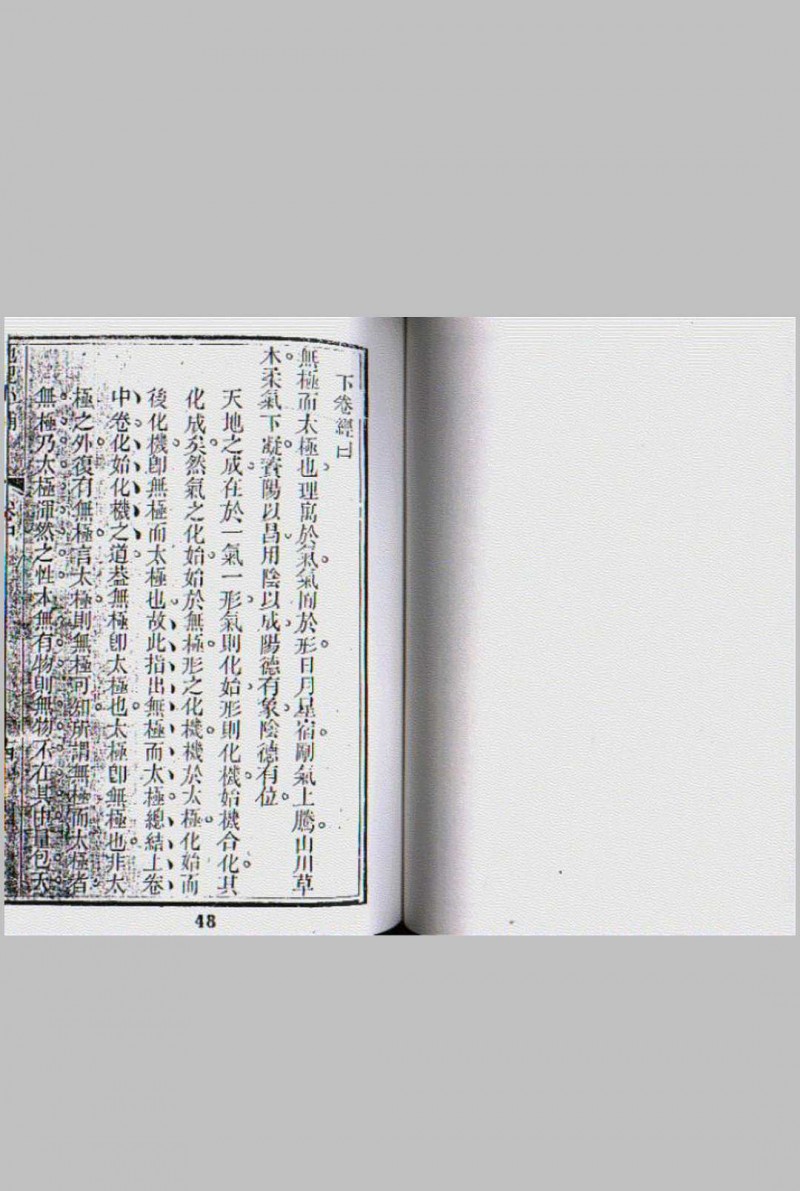 下卷經曰
無極而太極也理寓於氣氣囿於形日月星宿剛氣上騰山川草
木柔氣下凝資陽以昌用陰以成陽德有象陰德有位
天地之成在於一氣一形氣則化始形則化機始機合化其
化成矣然氣之化始始於無極形之化機機於太極化始而
後化機卽無極而太極也故此指出無極而太極總結上卷
中卷化始化機之道葢無極卽太極也太極卽無極也非太
極之外復有無極言太極則無極可知所謂無極而太極者
無極乃太極渾然之性本無有物則無物不在其中量包天
48